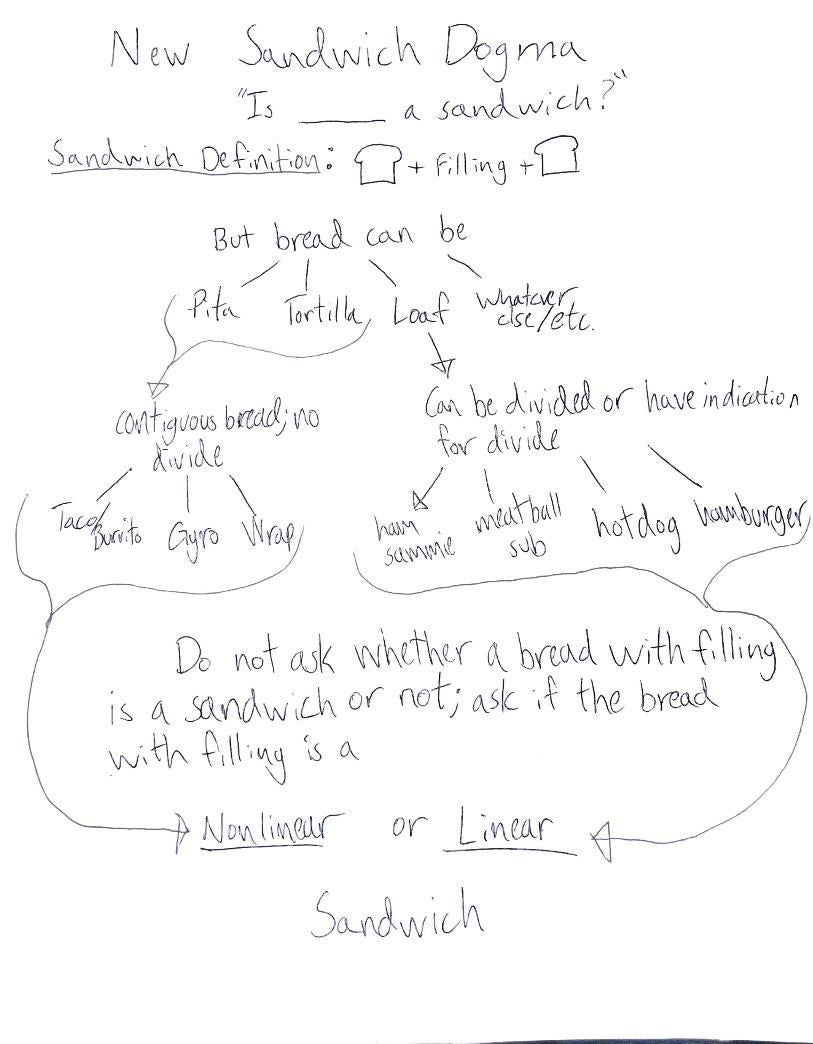 New Sandwich Dogma
"Is ____ a sandwich?"
Sandwich Definition: + Filling +
But bread can be
Pita Tortilla Loaf Whatever
else/etc.
contiguous bread; no
divide
Can be divided or have indication
for divide
Taco/
Burrito Gyro Wrap
ham
sammie
meatball
sub
hotdog hamburger
Do not ask whether a bread with filling
is a sandwich or not; ask if the bread
with filling is a
Nonlinear or Linear
Sandwich